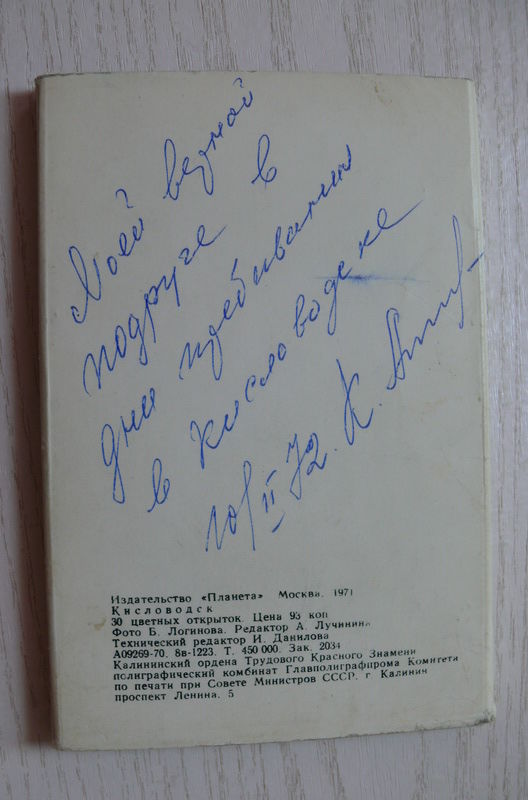 Моей верной
подруге в
дни пребывания
в Кисловодске
10/II 72. К.
Издательство «Планета» Москва. 1971
Кисловодск
30 цветных открыток. Цена 93 коп
Фото Б. Логинова. Редактор А. Лучинина
Технический редактор И. Данилова
А09269-70. 8в-1223. Т. 450 000. Зак. 2034
Калининский ордена Трудового Красного Знамени
полиграфический комбинат Главполиграфпрома Комитета
по печати при Совете Министров СССР. г Калинин
проспект Ленина. 5